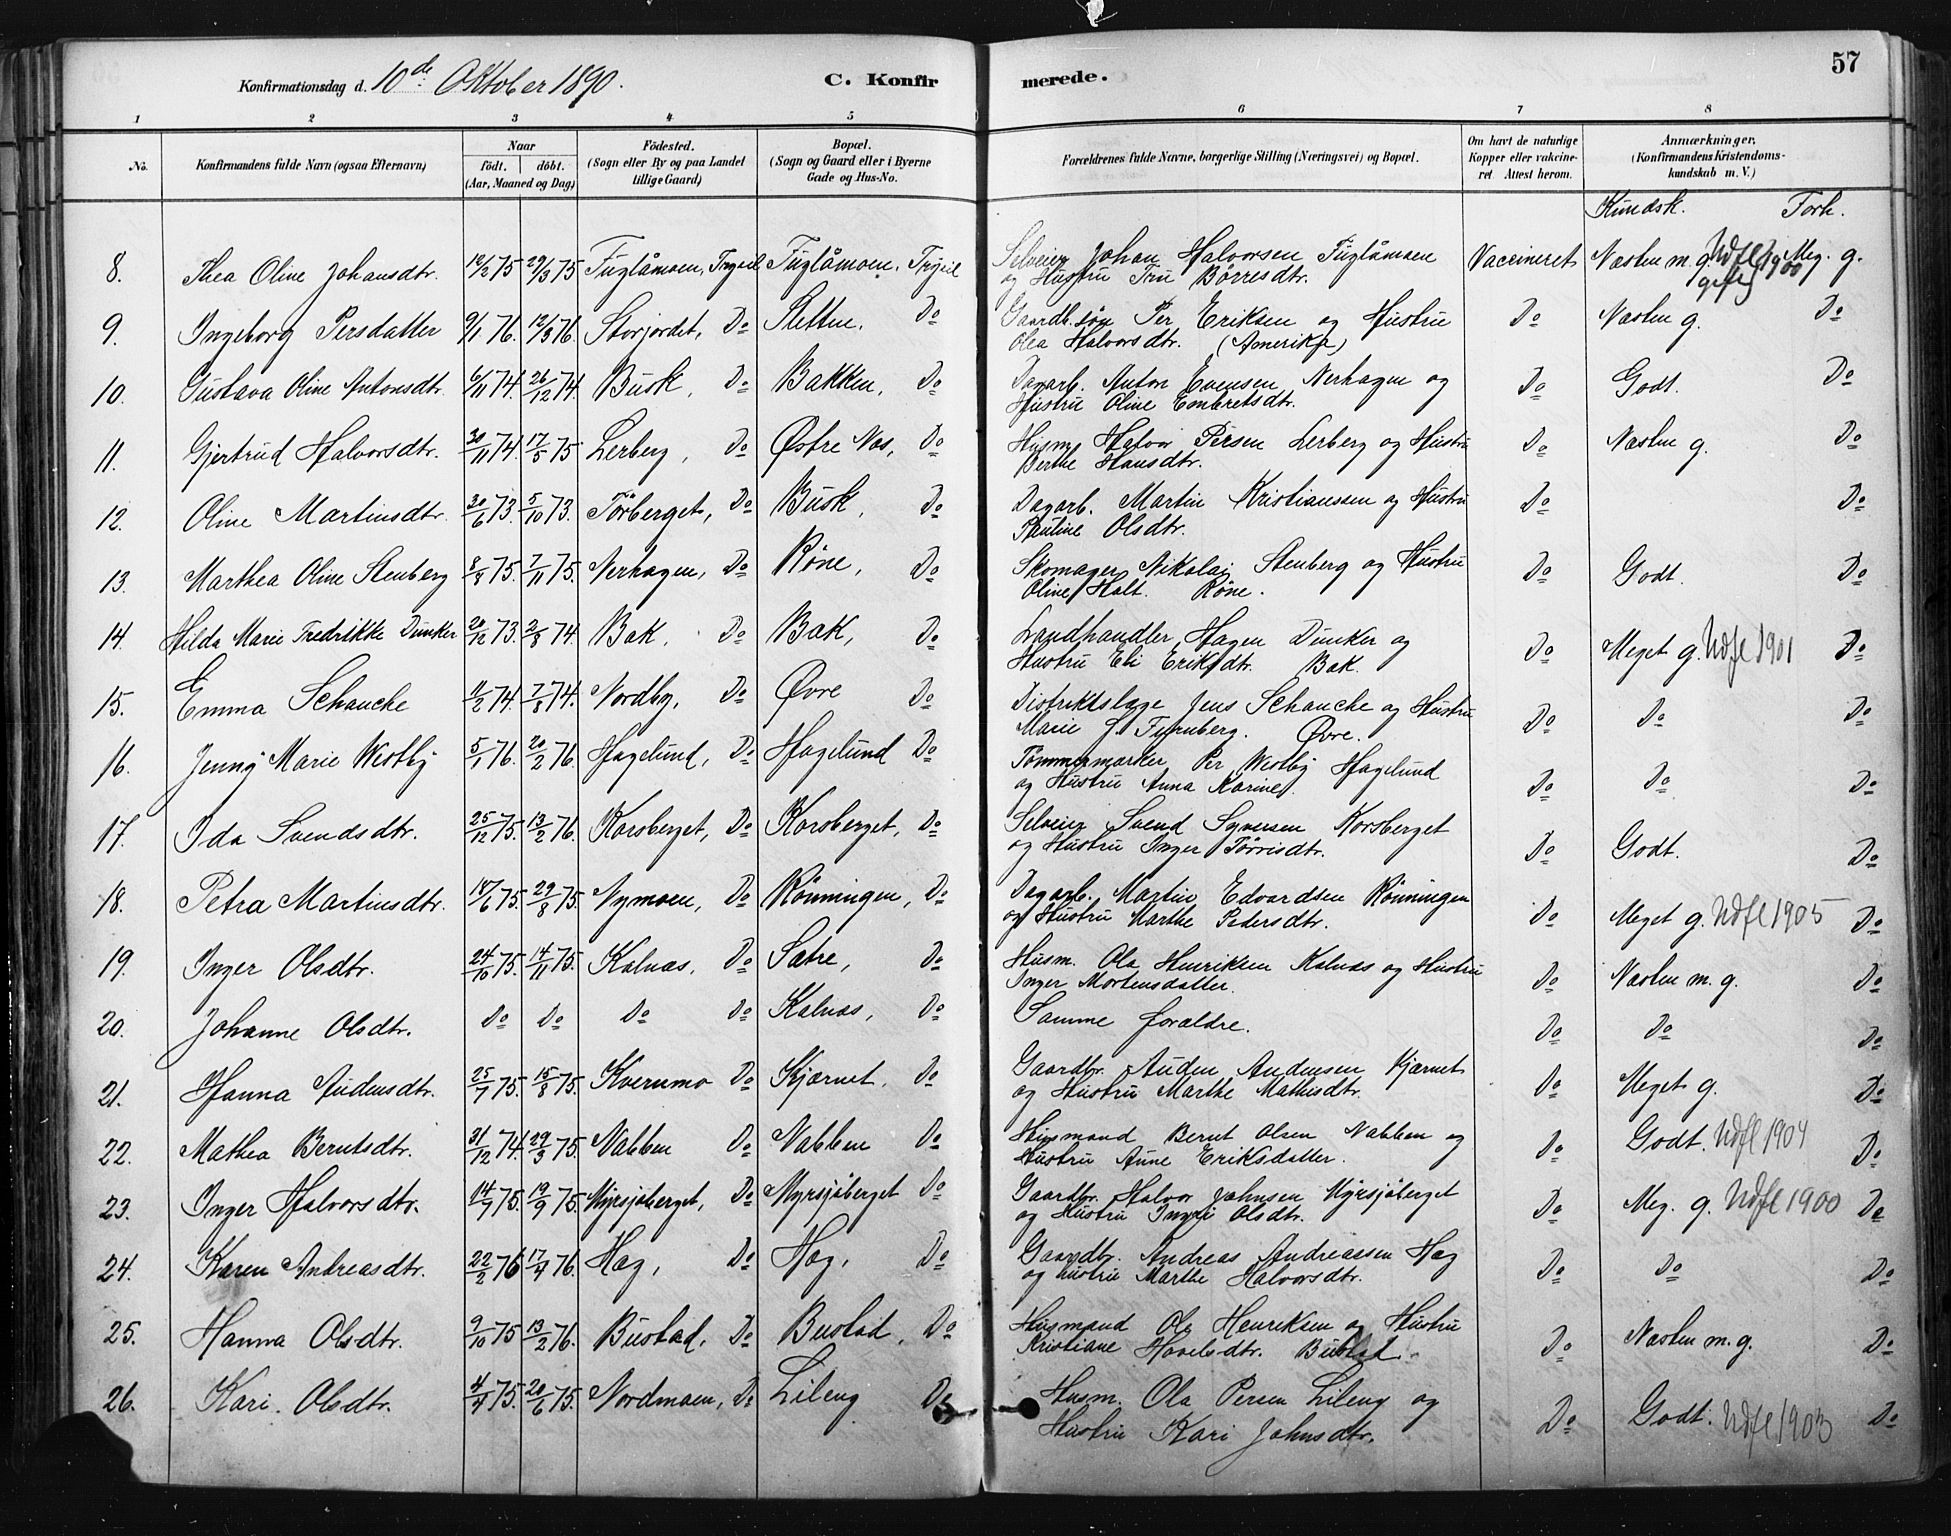 57
Konfirmationsdag d. 10de Oktober 1890. C. Konfirmerede.
1 2 3 4 5 6 7 8
No. Konfirmandens fulde Navn (ogsaa Efternavn) Naar födt. döbt. (Aar, Maaned og Dag) Födested. (Sogn eller By og paa Landet tillige Gaard) Bopæl. (Sogn og Gaard eller i Byerne Gade og Hus-No. Forældrenes fulde Navne, borgerlige Stilling (Næringsvei) og Bopæl. Om havt de naturlige Kopper eller vakcineret. Attest herom. Anmærkninger. (Konfirmandens Kristendomskundskab m. V.)
Kundsk. Forh.
8. Thea Oline Johansdtr. 12/2 75 29/3 75 Fuglåmoen, Trysil Fuglåmoen, Trysil Selveier Johan Halvorsen Fuglåmoen Vaccineret Næsten m. g. Udfl 1900 Meg. g.
og Hustru Tru Börresdtr.
9. Ingeborg Persdatter 9/1 76. 12/3 76. Storjordet, Do Sletten, Do Gaardb. søn Per Eriksen og Hustru Do Næsten g. Do
Olea Halvorsdtr. (Amerika)
10. Gustava Oline Antonsdtr. 6/11 74. 26/12 74. Busk, Do Bakken, Do Dagarb. Anton Evensen Nerhagen og Do Godt. Do
Hustru Oline Embretsdtr.
11. Gjertrud Halvorsdtr. 30/11 74. 17/5 75 Lerberg, Do Østre Næs, Do Husm. Halvor Persen Lerberg og Hustru Do Næsten g. Do
Berthe Hansdtr.
12. Oline Martinsdtr. 30/6 73. 5/10 73. Törberget, Do Busk, Do Dagarb. Martin Kristianssen og Hustru Do Do
Pauline Olsdtr.
13. Marthea Oline Stenberg 8/8 75. 7/11 75. Nerhagen, Do Röne, Do Skomager Nikolai Stenberg og Hustru Do Godt. Do
Oline Holt. Röne.
14. Hilda Marie Fredrikke Dunker 20/12 73. 2/8 74. Bak, Do Bak, Do Landhandler Hagen Dunker og Do Meget g. Udfl 1901 Do
Hustru Eli Eriksdtr. Bak.
15. Emma Schancke 11/2 74. 7/8 74. Nordby, Do Øvre Do Distriktslæge Jens Schancke og Hustru Do Do Do
Marie Øvre.
16. Jenny Marie Westby 5/1 76. 20/2 76. Hagelund, Do Hagelund Do Tömmermærker Per Westby Hagelund Do Do Do
og Hustru Anna Karine.
17. Ida Svendsdtr. 25/12 75. 13/2 76. Korsberget, Do Korsberget, Do Selveier Svend Syversen Korsberget Do Godt. Do
og Hustru Inger Törrisdtr.
18. Petra Martinsdtr. 18/6 75. 29/8 75. Nymoen, Do Rönningen, Do Dagarb. Martin Edvardsen Rönningen Do Meget g. Udfl 1905 Do
og Hustru Marthe Petersdtr.
19. Inger Olsdtr. 24/10 75. 14/11 75. Kalnæs, Do Sætre, Do Husm. Ola Henriksen Kalnæs og Hustru Do Næsten m. g. Do
Inger Mortensdatter.
20. Johanne Olsdtr. Do Do Do Do Kalnæs, Do Samme forældre. Do Do Do
21. Hanna Audensdtr. 25/7 75. 15/8 75. Kvernmo Do Kjærnet, Do Gaardbr. Auden Audensen Kjærnet Do Meget g. Do
og Hustru Marthe Mathisdtr.
22. Mathea Berntsdtr. 31/12 74. 29/3 75. Nabben Do Nabben Do Husmand Bernt Olsen Nabben og Do Godt. Udfl 1904 Do
Hustru Anne Eriksdatter.
23. Inger Halvorsdtr. 14/7 75. 19/9 75. Myrsjöberget, Do Myrsjöberget Do Gaardbr. Halvor Johnsen Myrsjöberget Do Meg. g. Udfl 1900 Do
og Hustru Ingri Olsdtr.
24. Karen Andreasdtr. 22/2 76 17/4 76. Hag, Do Hag, Do Gaardbr. Andreas Andreassen Hag Do Do Do
og hustru Marthe Halvorsdtr.
25. Hanna Olsdtr. 9/10 75 13/2 76. Bustad, Do Bustad, Do Husmand Ole Henriksen og Hustru Do Næsten m. g. Do
Kristiane Hovelsdtr. Bustad.
26. Kari Olsdtr. 4/4 75. 20/6 75. Nordmoen, Do Lileng Do Husm. Ola Persen Lileng og Do Godt. Udfl 1903 Do
Hustru Kari Johnsdtr.